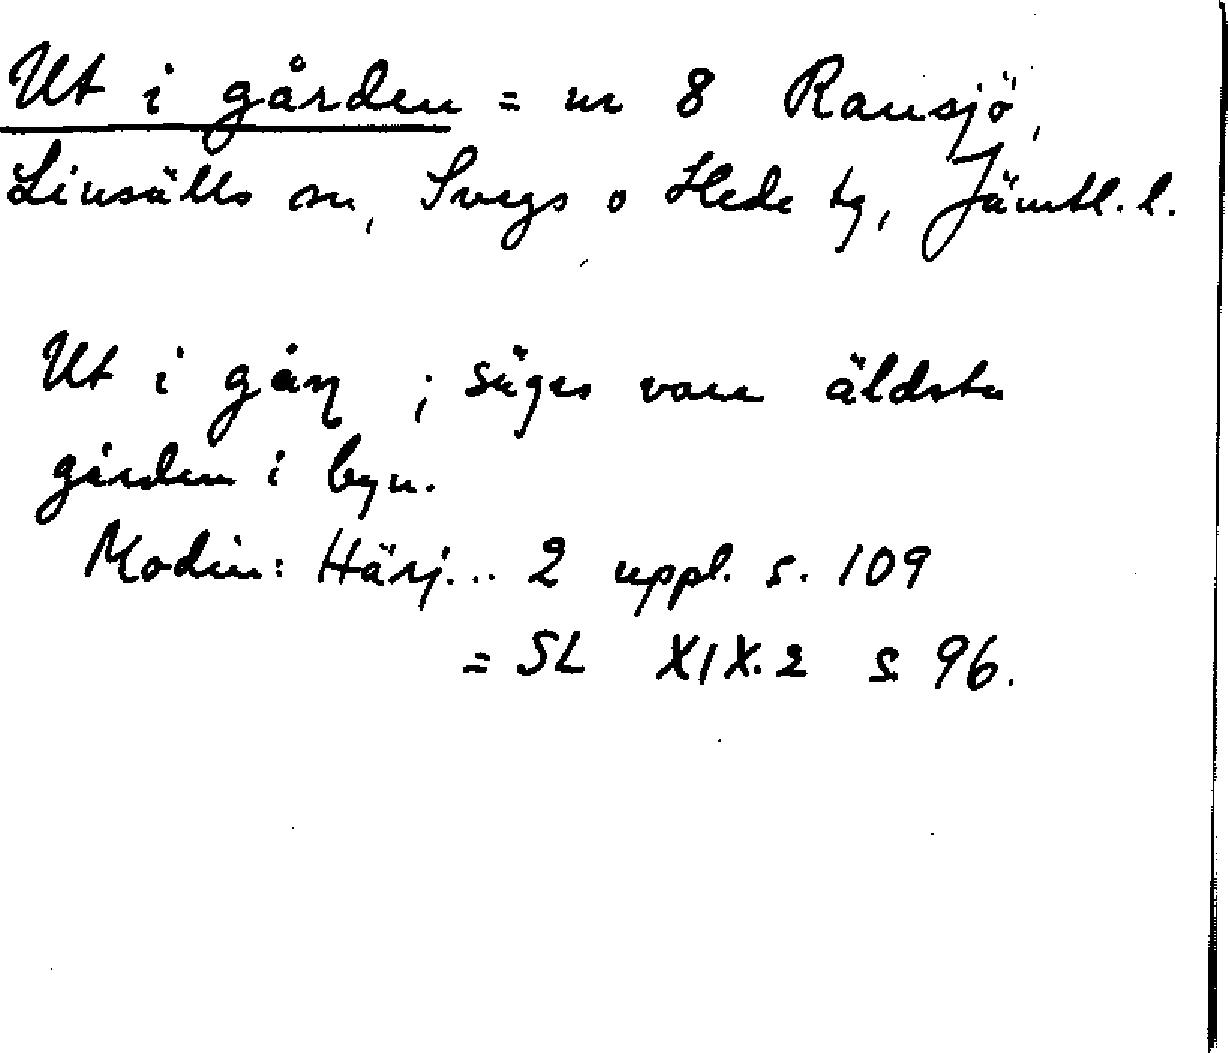 Ut i gården = nr 8 Ransjö,
Linsälls sn, Svegs o Hede tg, Jämtl. l.
Ut i gåɳ ; säges vara äldsta
gården i byn.
Modin: Härj... 2 uppl. s. 109
= SL XIX.2 s 96.